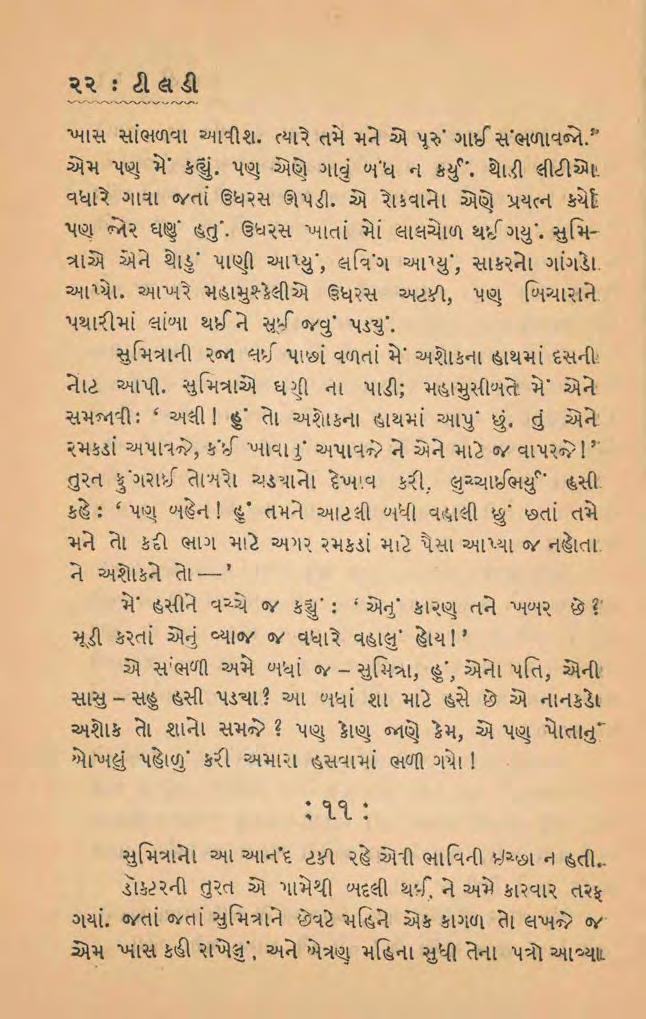 ૨૨ : ટી લ ડી
ખાસ સાંભળવા આવીશ. ત્યારે તમે મને એ પૂરું ગાઈ સંભળાવજો.”
એમ પણ મેં કહ્યું. પણ એણે ગાવું બંધ ન કર્યું. થોડી લીટીઓ
વધારે ગાવા જતાં ઉધરસ ઊપડી. એ રોકવાનો એણે પ્રયત્ન કર્યો
પણ જોર ઘણું હતું. ઉધરસ ખાતાં મોં લાલચોળ થઈ ગયું. સુમિ-
ત્રાએ એને થોડું પાણી આપ્યું, લવિંગ આપ્યું, સાકરનો ગાંગડો
આપ્યો. આખરે મહામુશ્કેલીએ ઉધરસ અટકી, પણ બિચારાને
પથારીમાં લાંબા થઈને સૂઈ જવું પડ્યું.
સુમિત્રાની રજા લઈ પાછાં વળતાં મેં અશોકના હાથમાં દસની
નોટ આપી. સુમિત્રાએ ઘણી ના પાડી; મહામુસીબતે મેં એને
સમજાવી: ‘ અલી! હું તો અશોકના હાથમાં આપું છું. તું એને
રમકડાં અપાવજે, કંઈ ખાવાનું અપાવજે ને એને માટે જ વાપરજે!’
તુરત ફુંગરાઈ તોબરો ચડ્યાનો દેખાવ કરી, લુચ્ચાઈભર્યું હસી
કહે : ‘ પણ બહેન! હું તમને આટલી બધી વહાલી છું છતાં તમે
મને તો કદી ભાગ માટે અગર રમકડાં માટે પૈસા આપ્યા જ નહોતા
ને અશોકને તો —’
મેં હસીને વચ્ચે જ કહ્યું : ‘ એનું કારણ તને ખબર છે ?
મૂડી કરતાં એનું વ્યાજ જ વધારે વહાલું હોય!’
એ સંભળી અમે બધાં જ – સુમિત્રા, હું, એનો પતિ, એની
સાસુ – સહુ હસી પડ્યા? આ બધાં શા માટે હસે છે એ નાનકડો
અશોક તો શાનો સમજે ? પણ કોણ જાણે કેમ, એ પણ પોતાનું
બોખલું પહોળું કરી અમારા હસવામાં ભળી ગયો !
: ૧૧ :
સુમિત્રાનો આ આનંદ ટકી રહે એવી ભાવિની ઇચ્છા ન હતી.
ડૉક્ટરની તુરત એ ગામેથી બદલી થઈ, ને અમે કારવાર તરફ
ગયાં. જતાં જતાં સુમિત્રાને છેવટે મહિને એક કાગળ તો લખજે જ
એમ ખાસ કહી રાખેલું, અને બેત્રણ મહિના સુધી તેના પત્રો આવ્યા.